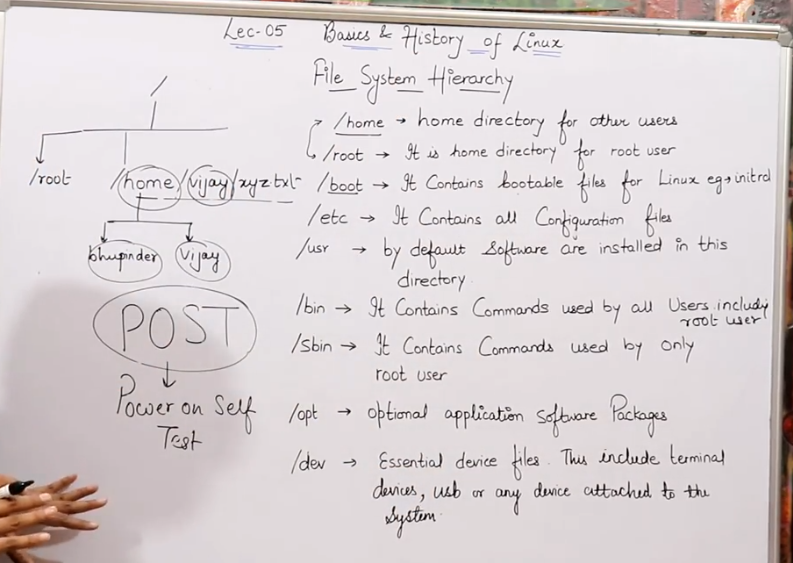 Lec-05 Basics & History of Linux
File System Hierarchy
/
/root
/home/vijay/xyz txt
bhupinder
vijay
POST
Power on Self
Test
/home → home directory for other users
/root → It is home directory for root user
/boot → It Contains bootable files for Linux eg→initrd
/etc → It Contains all Configuration files
/usr → by default Software are installed in this
directory
/bin → It Contains Commands used by all Users including
root user
/Sbin → It Contains Commands used by only
root user
/opt → optional application Software Packages
/dev → Essential device files. This include terminal
devices, usb or any device attached to the
System.